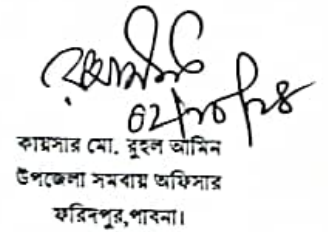 ০২/১০/২৪
কায়সার মো. রুহুল আমিন
উপজেলা সমবায় অফিসার
ফরিদপুর,পাবনা।